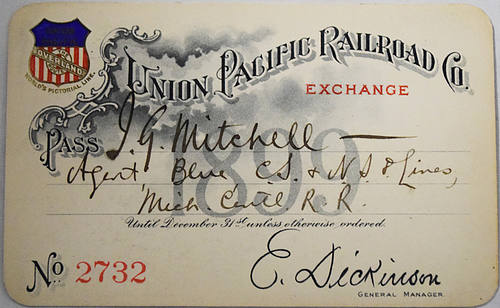 THE OVERLAND ROUTE
WORLD'S PICTORIAL LINE.
UNION PACIFIC RAILROAD CO.
EXCHANGE
PASS J. G. Mitchell
1899
Agent Blue C.S. & N.S.& Lines,
Mich Centl R. R.
Until December 31st unless otherwise ordered.
No 2732
E. Dickinson
GENERAL MANAGER.